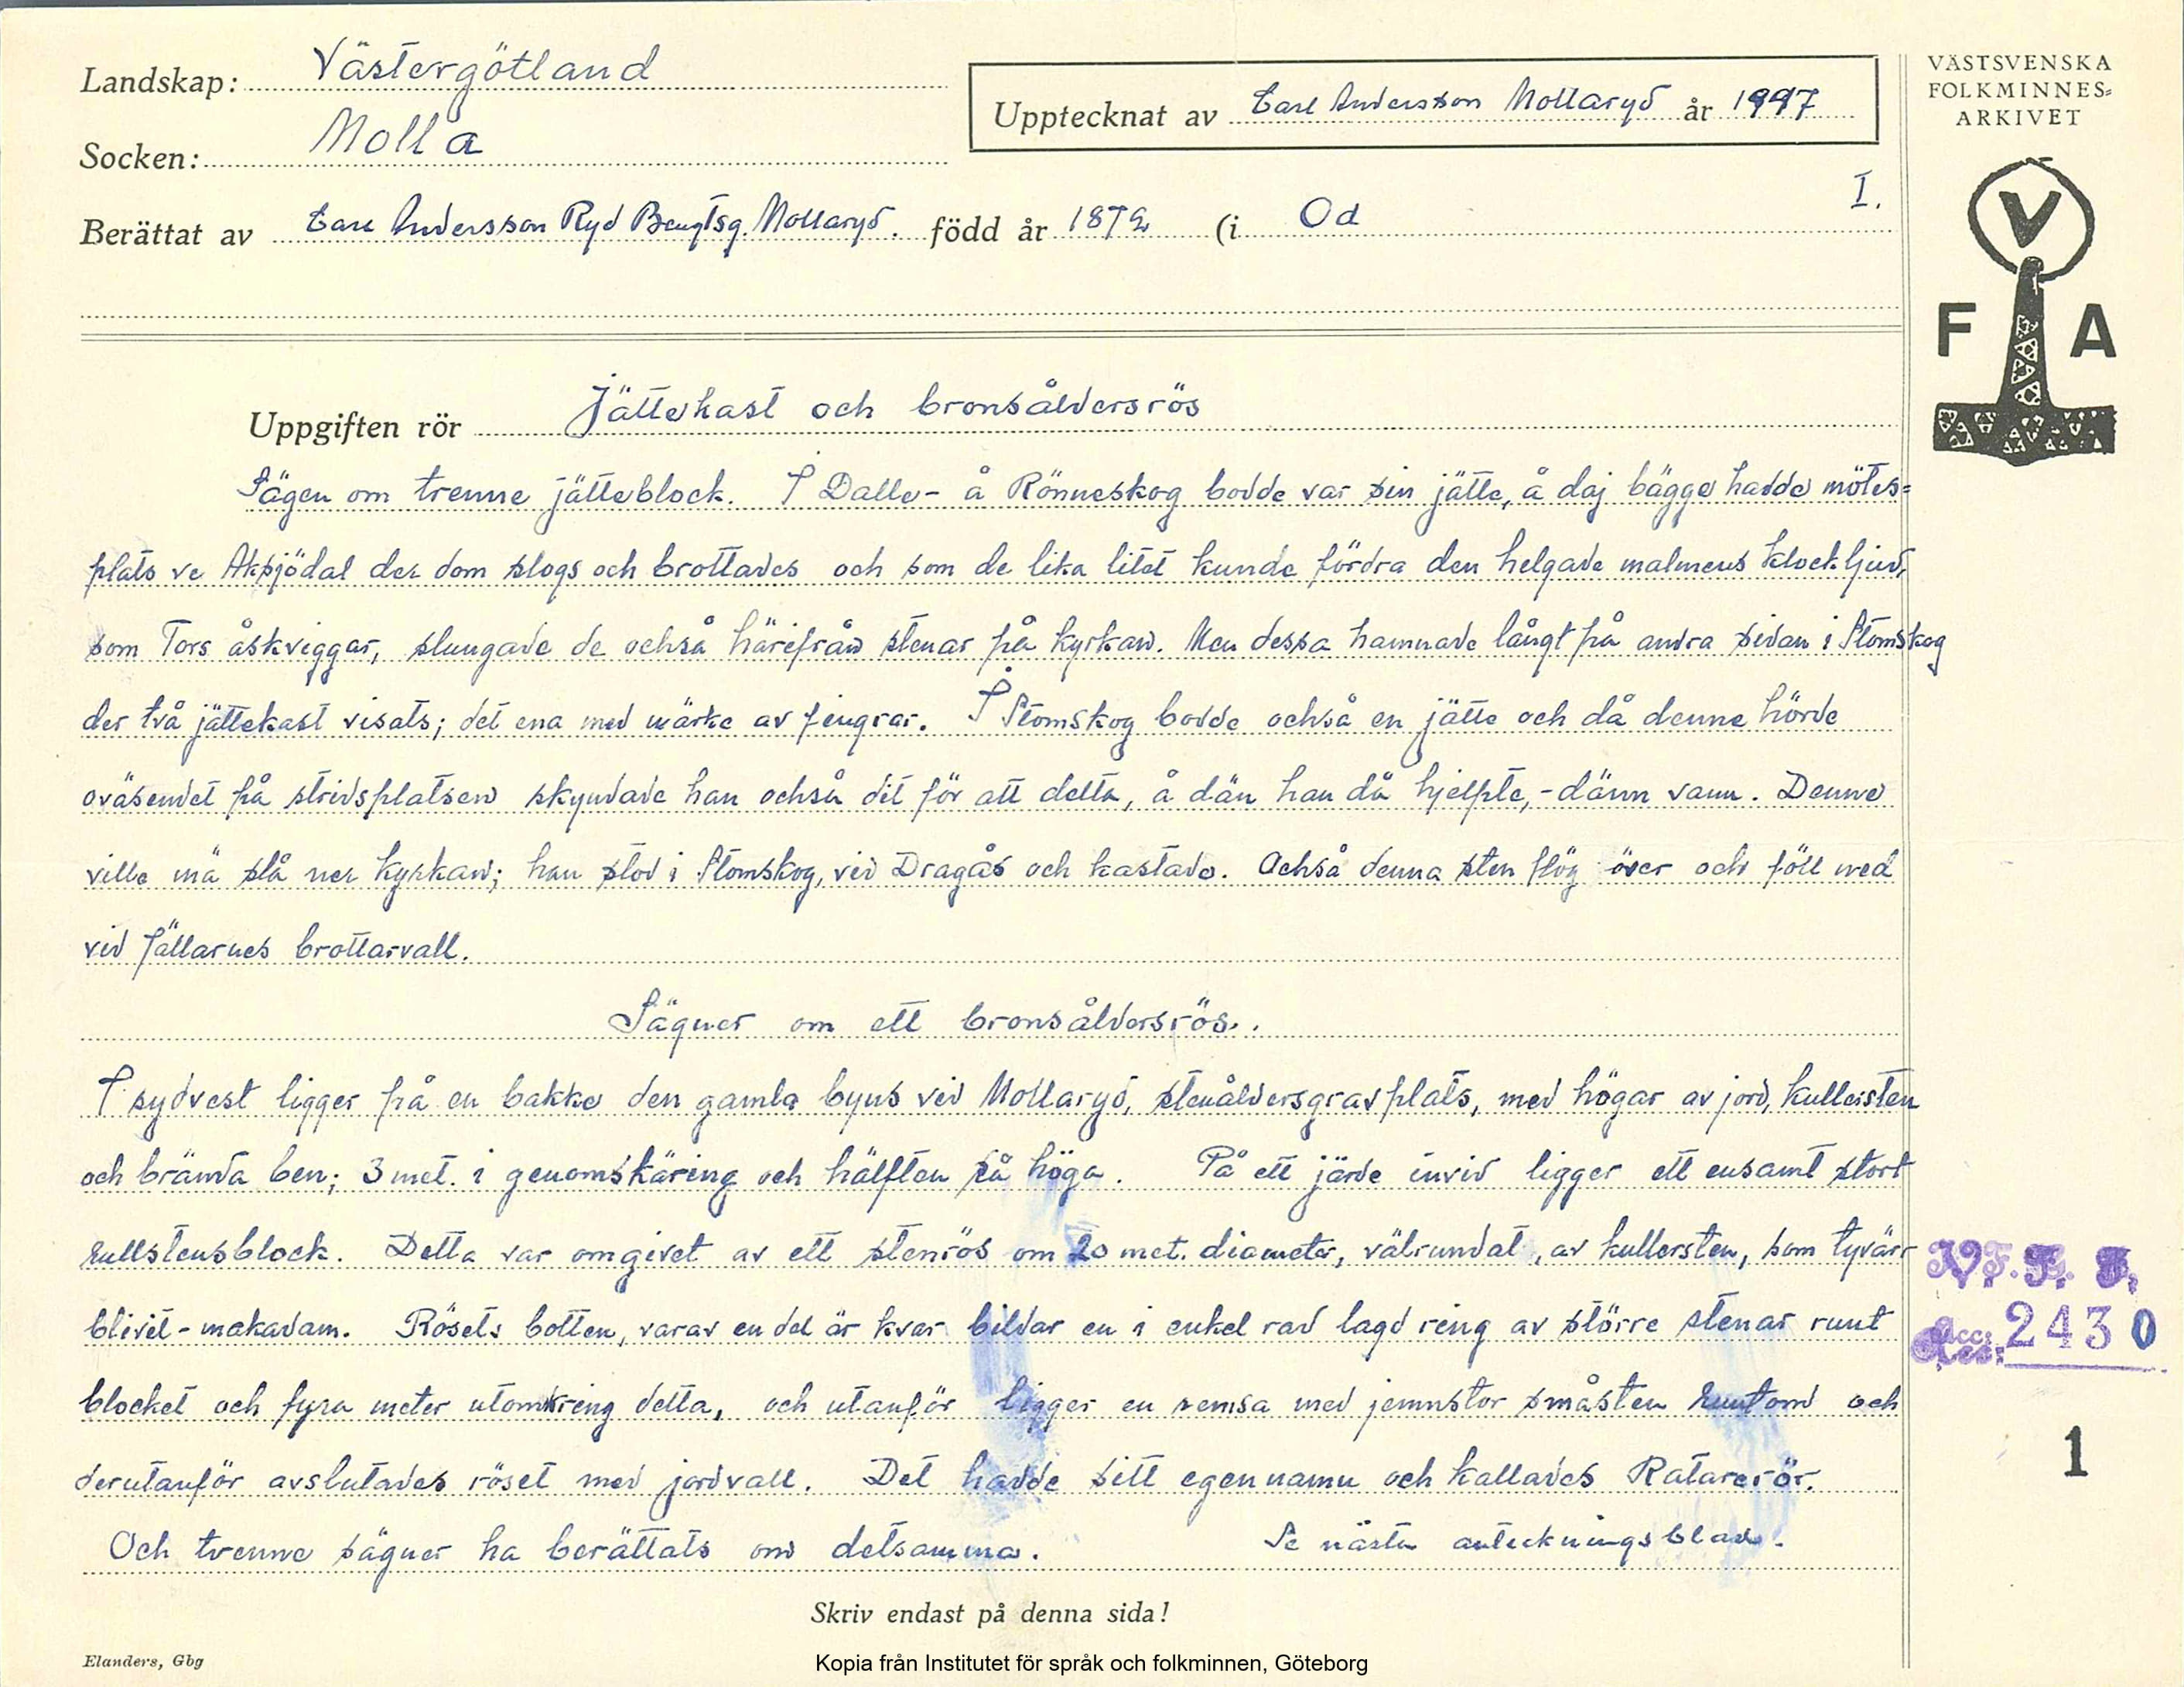 Landskap: Västergötland
Socken: Molla
Upptecknat av Carl Andersson Mollaryd år
Berättat av Carl Andersson Ryd Bengtsg. Mollaryd. född år 1872 (i Od
I.
VÄSTSVENSKA
FOLKMINNES=
ARKIVET
V
F A
Uppgiften rör Jättekast och bronsåldersrös
Sägen om trenne jätteblock. I Dalle- å Rönneskog bodde var sin jätte, å daj bägge hadde mötes=
plats ve Aksjödal der dom slogs och brottades och som de lika litet kunde fördra den helgade malmens klockljud,
som Tors åskviggar, slungade de också härifrån stenar på kyrkan. Men dessa hamnade långt på andra sidan i Stomskog
der två jättekast visats; det ena med märke av fingrar. I Stomskog bodde också en jätte och då denne hörde
oväsendet på stridsplatsen skyndade han också dit för att delta, å dän han då hjelpte, - dänn vann. Denne
ville mä slå ner kyrkan; han stod i Stomskog, vid Dragås och kastade. Också denna sten flög över och föll ned
vid jättarnes brottarvall.
Sägner om ett bronsåldersrös.
I sydvest ligger på en bakke den gamla byns vid Mollaryd, stenåldersgravplats, med högar av jord, kullersten
och brända ben; 3 met. i genomskäring och hälften så höga. På ett järde invid ligger ett ensamt stort
rullstensblock. Detta var omgivet av ett stenrös om 20 met. diameter, välrundat, av kullersten, som tyvärr
blivit - makadam. Rösets botten, varav en del är kvar bildar en i enkel rad lagd ring av större stenar runt
blocket och fyra meter utomkring detta, och utanför ligger en remsa med jemnstor småsten runtom och
derutanför avslutades röset med jordvall. Det hadde sitt egennamn och kallades Ratarerör.
Och trenne sägner ha berättats om detsamma. Se nästa anteckningsblad.
Acc: 2430
1
Skriv endast på denna sida!
Elanders, Gbg
Kopia från Institutet för språk och folkminnen, Göteborg